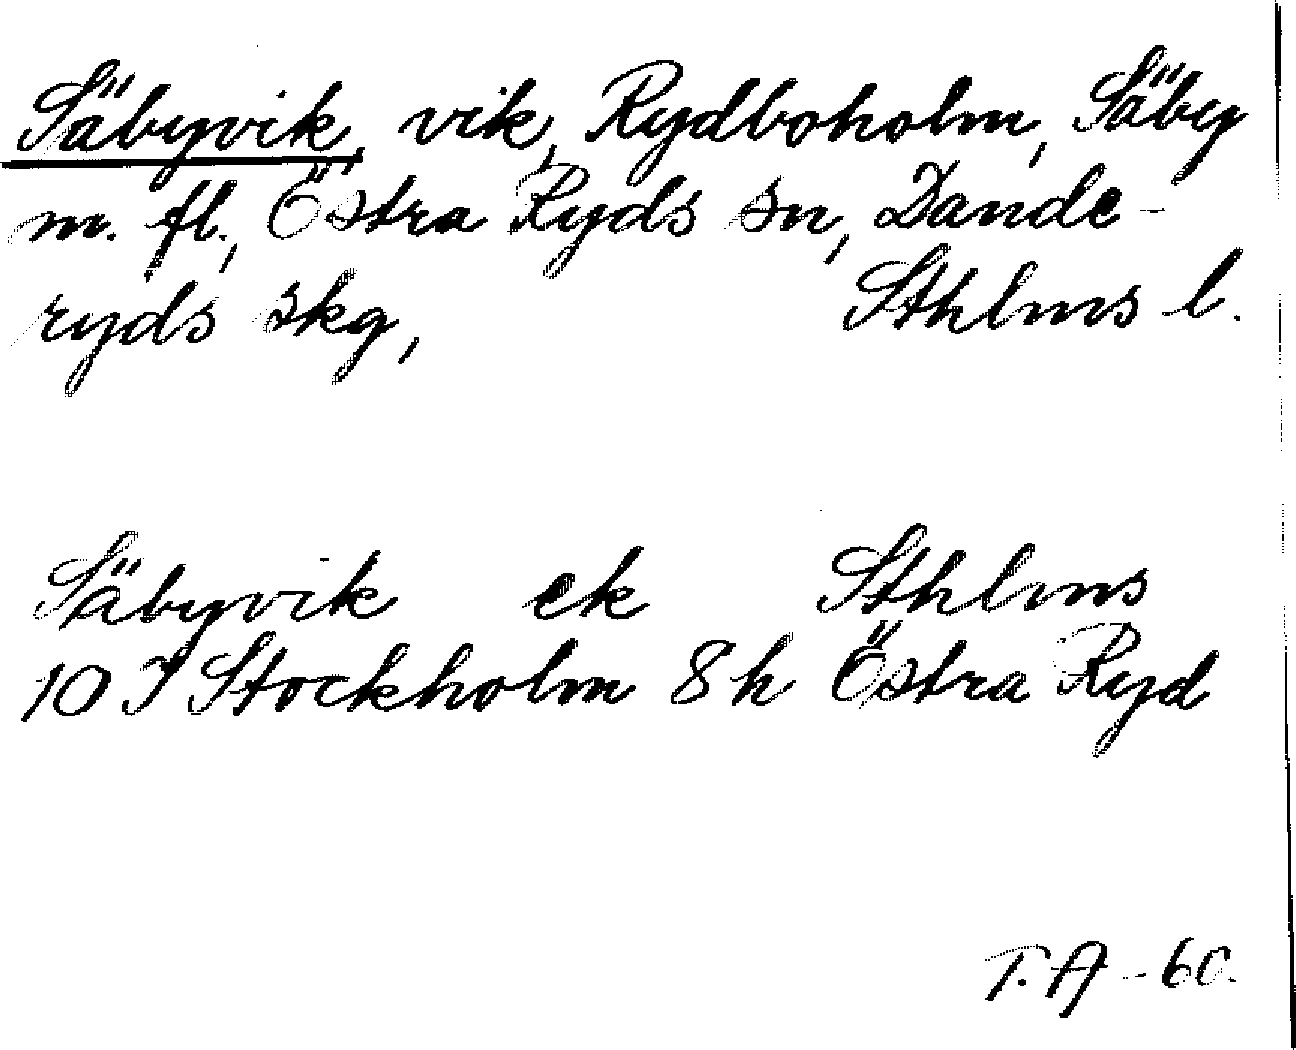 Säbyvik, vik, Rydboholm, Säby
m. fl., Östra Ryds sn, Dande-
ryds skg, Sthlms l.
Säbyvik ek Sthlms
10 I Stockholm 8h Östra Ryd
T. A -60.